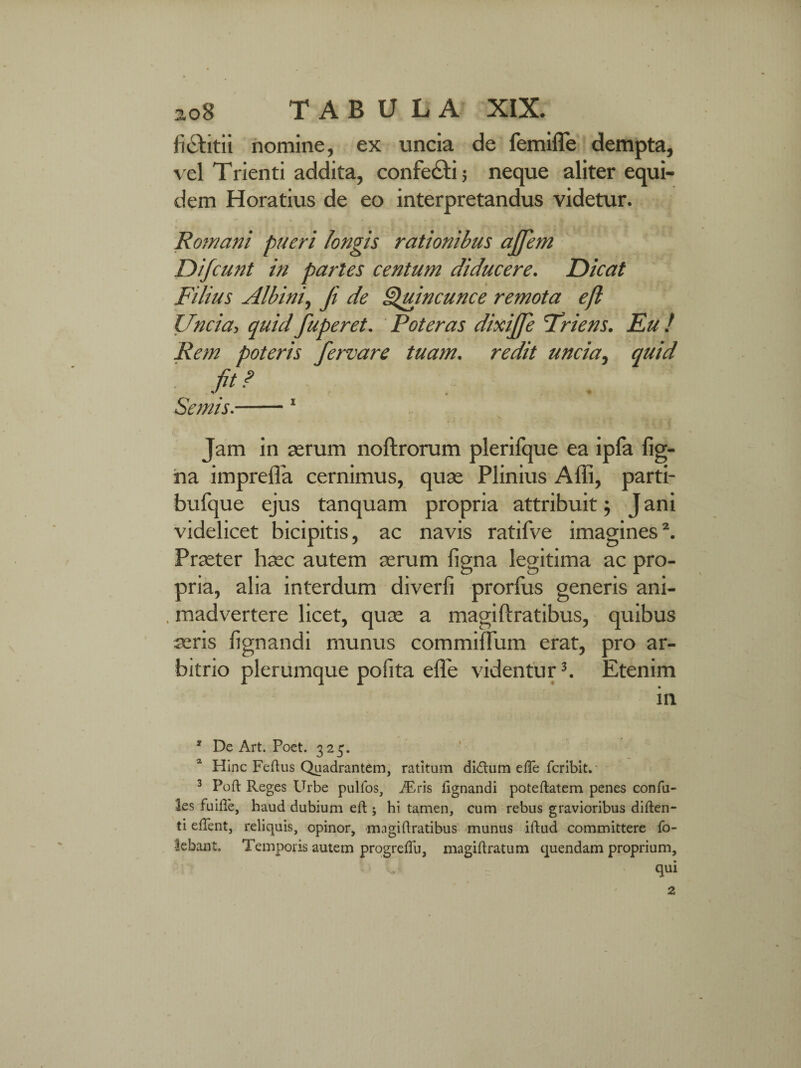 208 TABULA XIX.
fictitii nomine, ex uncia de ſemiſſe dempta,
vel Trienti addita, confecti; neque aliter equi-
dem Horatius de eo interpretandus videtur.
Romani pueri longis rationibus aſſem
Diſcunt in partes centum diducere. Dicat
Filius Albini, ſi de Quincunce remota eſt
Uncia, quid ſuperet. Poteras dixiſſe Triens. Eu!
Rem poteris ſervare tuam. redit uncia, quid
fit?
Semis.—— ¹
Jam in ærum noſtrorum pleriſque ea ipſa ſig-
na impreſſa cernimus, quæ Plinius Aſſi, parti-
buſque ejus tanquam propria attribuit; Jani
videlicet bicipitis, ac navis ratiſve imagines ².
Præter hæc autem ærum ſigna legitima ac pro-
pria, alia interdum diverſi prorſus generis ani-
madvertere licet, quæ a magiſtratibus, quibus
æris ſignandi munus commiſſum erat, pro ar-
bitrio plerumque poſita eſſe videntur ³. Etenim
in
¹ De Art. Poet. 325.
² Hinc Feſtus Quadrantem, ratitum dictum eſſe ſcribit.
³ Poſt Reges Urbe pulſos, Æris ſignandi poteſtatem penes conſu-
les fuiſſe, haud dubium eſt; hi tamen, cum rebus gravioribus diſten-
ti eſſent, reliquis, opinor, magiſtratibus munus iſtud committere ſo-
lebant. Temporis autem progreſſu, magiſtratum quendam proprium,
qui
2